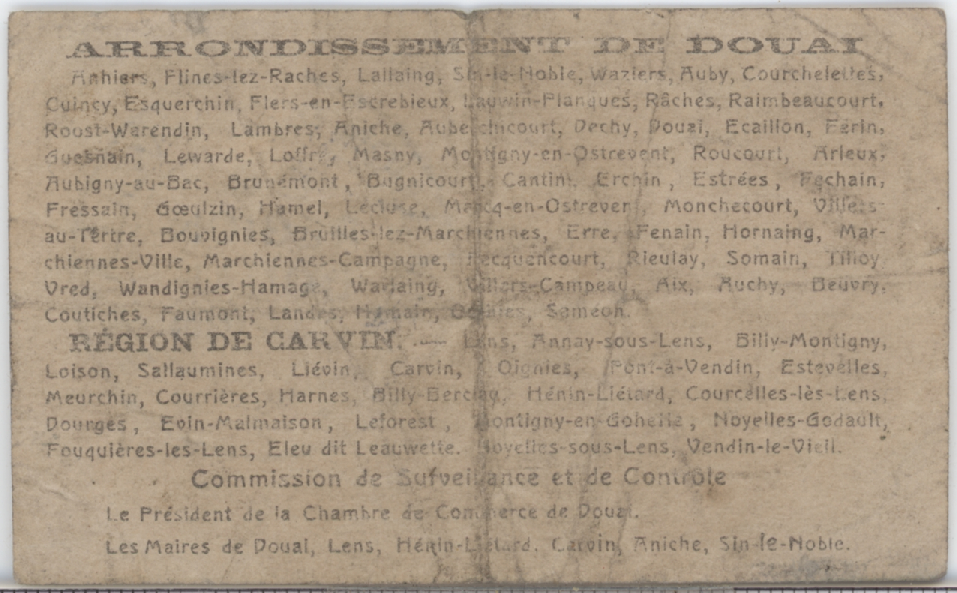 ARRONDISSEMENT DE DOUAI
Anhiers, Flines-lez-Raches, Lallaing, Sin-le-Noble, Waziers, Auby, Courchelettes,
Cuincy, Esquerchin, Flers-en-Escrebieux, Lauwin-Planques, Râches, Raimbeaucourt,
Roost-Warendin, Lambres, Aniche, Auberchicourt, Dechy, Douai, Ecaillon, Férin,
Guesnain, Lewarde, Loffre, Masny, Montigny-en-Ostrevent, Roucourt, Arleux,
Aubigny-au-Bac, Brunémont, Bugnicourt, Cantin, Erchin, Estrées, Féchain,
Fressain, Gœulzin, Hamel, Lécluse, Marcq-en-Ostrevent, Monchecourt, Villers-
au-Tertre, Bouvignies, Bruilles-lez-Marchiennes, Erre, Fenain, Hornaing, Mar-
chiennes-Ville, Marchiennes-Campagne, Pecquencourt, Rieulay, Somain, Tilloy
Vred, Wandignies-Hamage, Warlaing, Villers-Campeau, Aix, Auchy, Beuvry,
Coutiches, Faumont, Landas, Hamain, Saméon.
RÉGION DE CARVIN. — Lens, Annay-sous-Lens, Billy-Montigny,
Loison, Sallaumines, Liévin, Carvin, Oignies, Pont-à-Vendin, Estevelles,
Meurchin, Courrières, Harnes, Billy-Berclau, Hénin-Liétard, Courcelles-lès-Lens,
Dourges, Evin-Malmaison, Leforest, Montigny-en-Gohelle, Noyelles-Godault,
Fouquières-les-Lens, Eleu dit Leauwette. Noyelles-sous-Lens, Vendin-le-Vieil.
Commission de Surveillance et de Contrôle
Le Président de la Chambre de Commerce de Douai.
Les Maires de Douai, Lens, Hénin-Liétard. Carvin, Aniche, Sin-le-Noble.